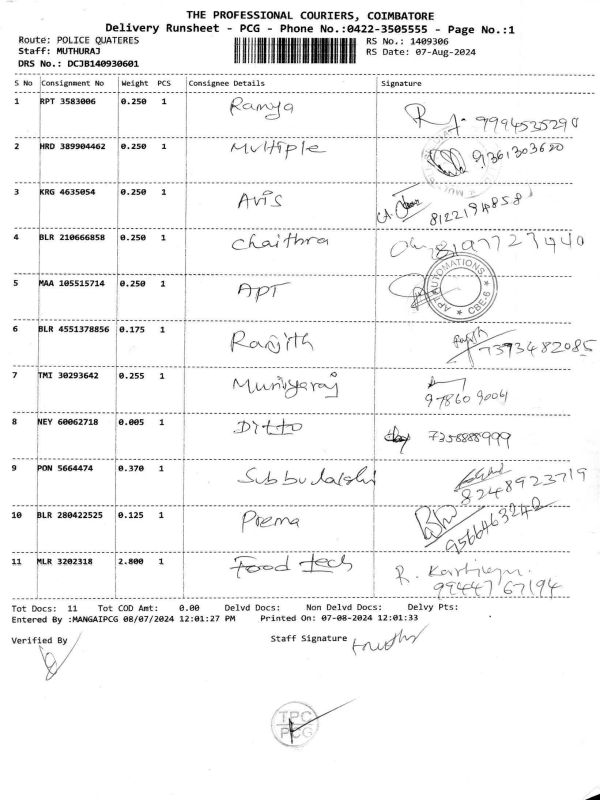 THE PROFESSIONAL COURIERS, COIMBATORE
Delivery Runsheet - PCG - Phone No.:0422-3505555 - Page No.:1
Route: POLICE QUATERES RS No.: 1409306
Staff: MUTHURAJ RS Date: 07-Aug-2024
DRS No.: DCJB140930601
S No Consignment No Weight PCS Consignee Details Signature
1 RPT 3583006 0.250 1 Ramya 9994535290
2 HRD 389904462 0.250 1 Multiple 9361303620
3 KRG 4635054 0.250 1 Avis 8122194858
4 BLR 210666858 0.250 1 Chaithra 8197723440
5 MAA 105515714 0.250 1 APT APT AUTOMATIONS ★ CBE-6 ★
6 BLR 4551378856 0.175 1 Ranjith 7373482085
7 TMI 30293642 0.255 1 Muniyaraj 978609004
8 NEY 60062718 0.005 1 Ditto 7358888999
9 PON 5664474 0.370 1 Subbulakshi 8248923719
10 BLR 280422525 0.125 1 Prema 9566463242
11 MLR 3202318 2.800 1 Food tech R. 9944767194
Tot Docs: 11 Tot COD Amt: 0.00 Delvd Docs: Non Delvd Docs: Delvy Pts:
Entered By :MANGAIPCG 08/07/2024 12:01:27 PM Printed On: 07-08-2024 12:01:33
Verified By Staff Signature
TPC
PCG